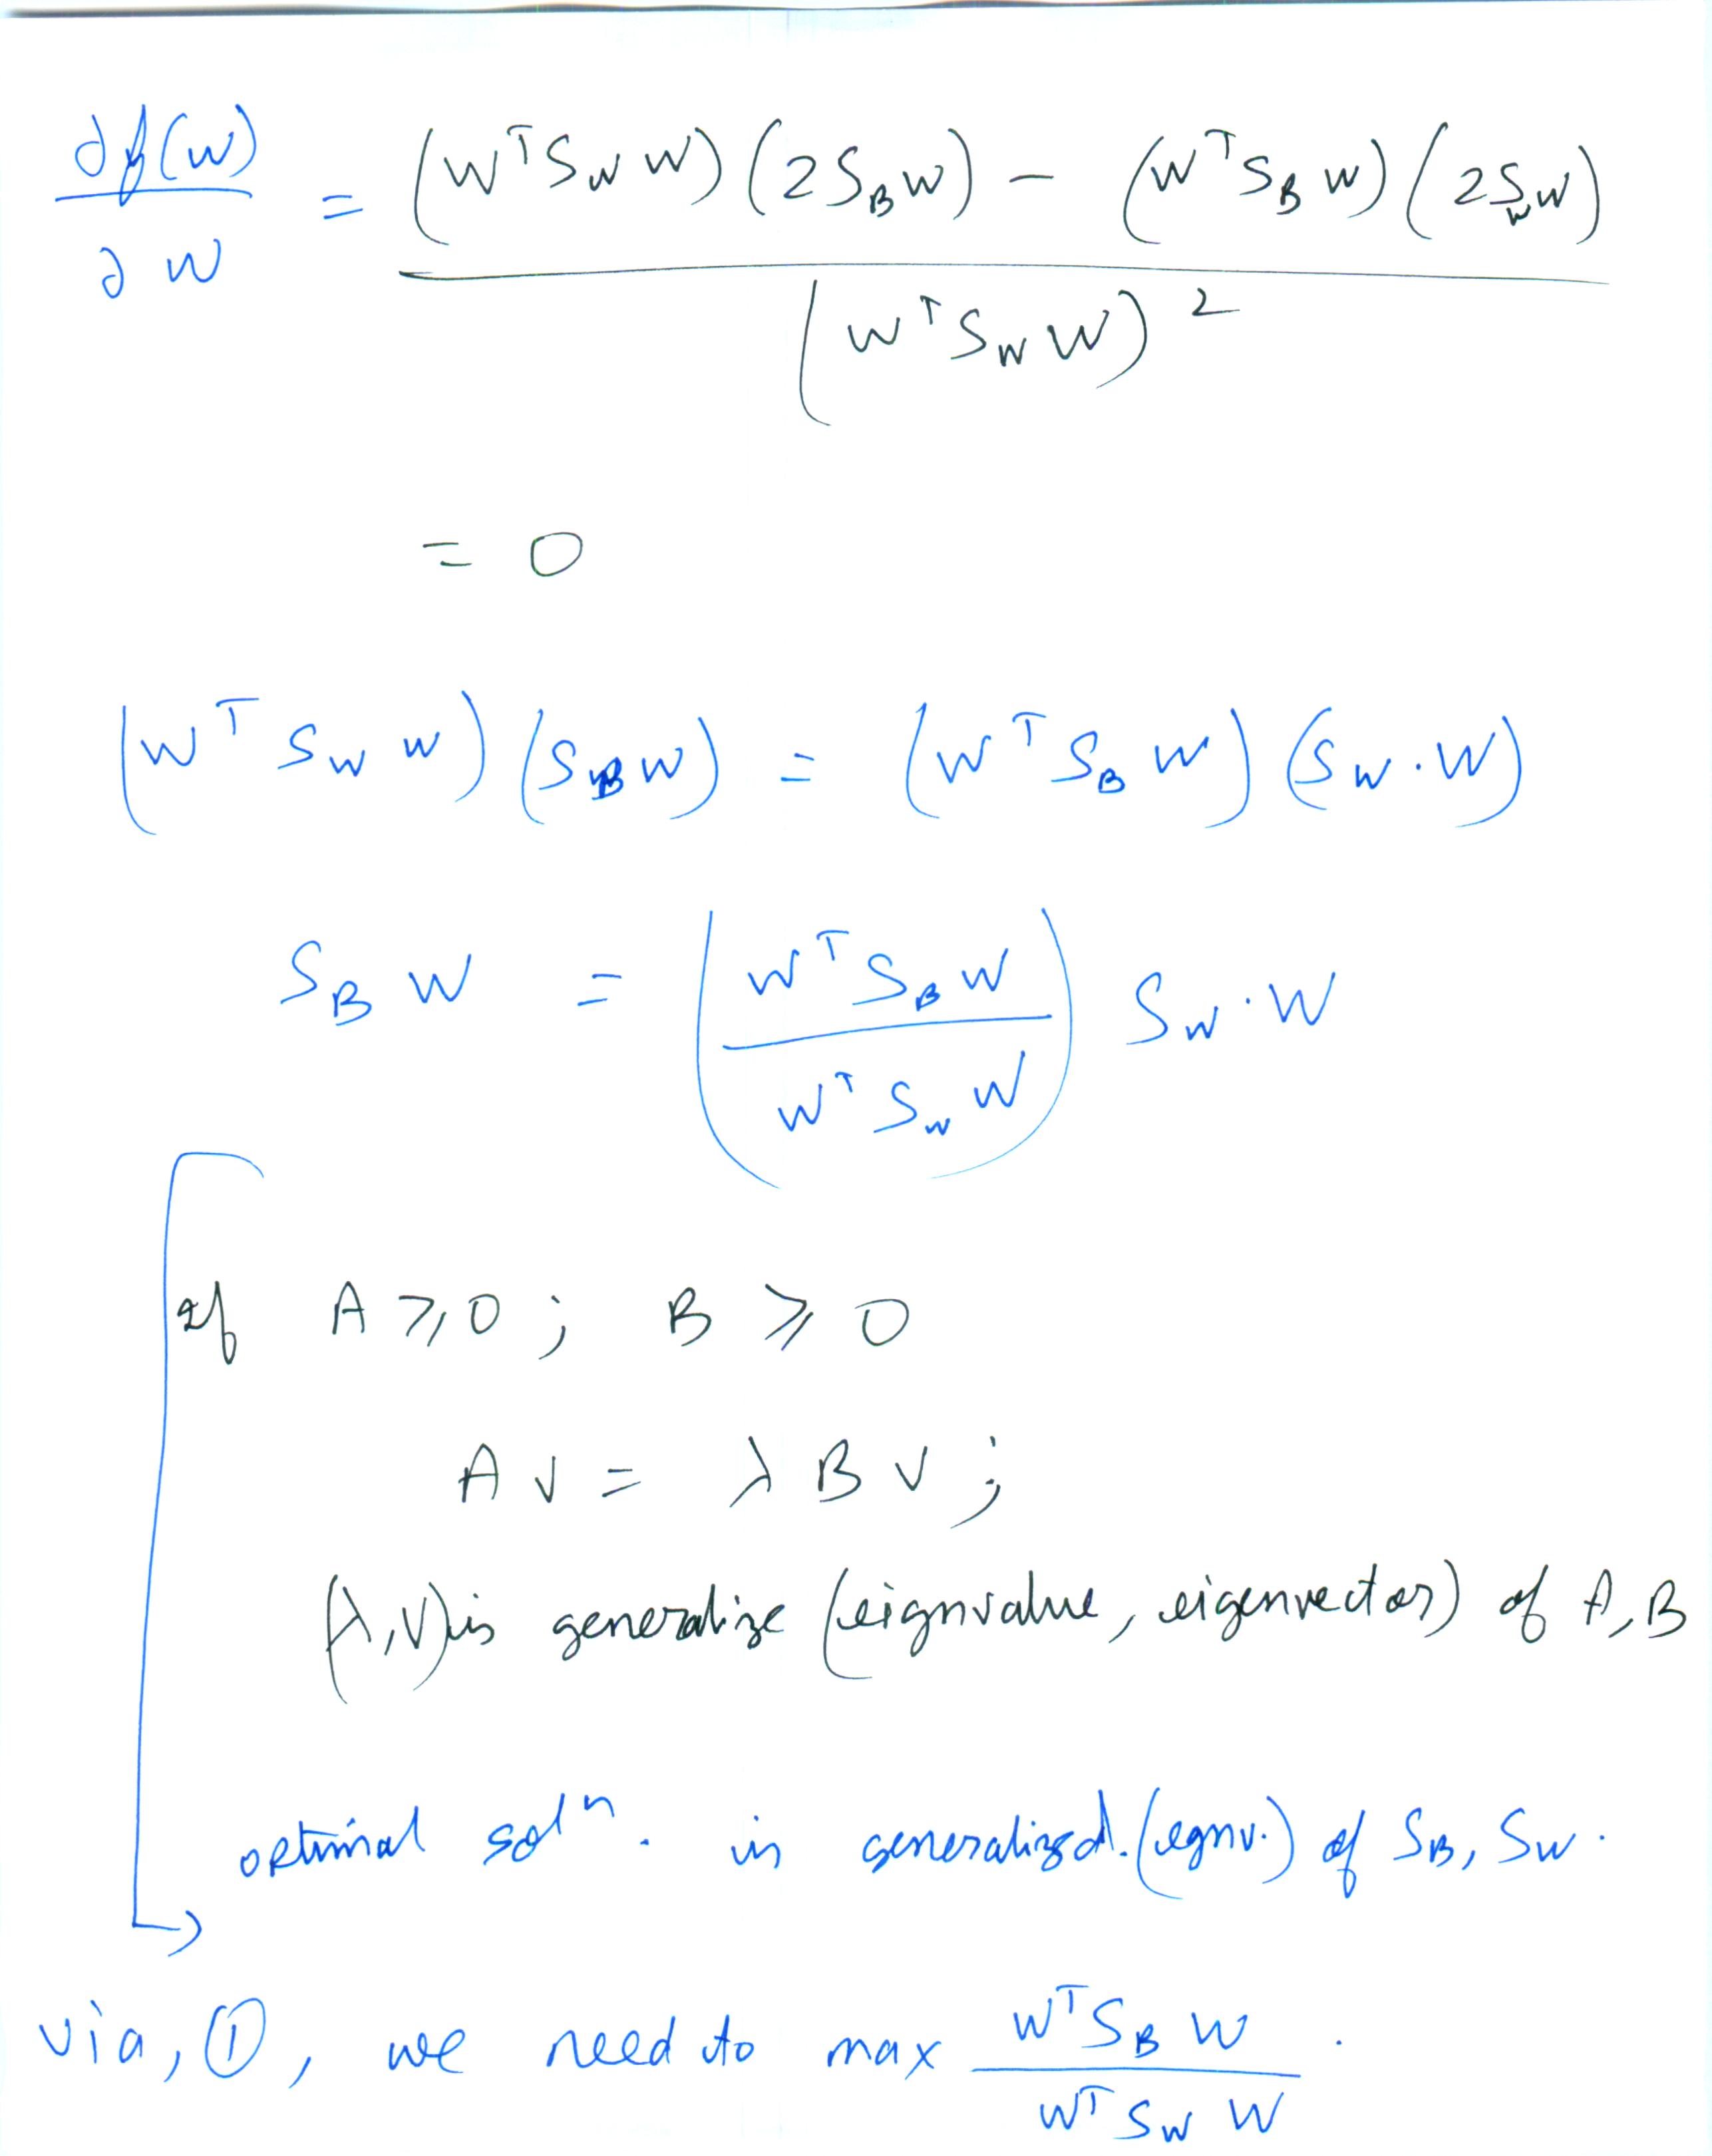 ∂f(w)/∂w = ((w^T S_W w)(2S_B w) − (w^T S_B w)(2S_W w)) / (w^T S_W w)^2
= 0
(w^T S_W w)(S_B w) = (w^T S_B w)(S_W · w)
S_B w = (w^T S_B w / w^T S_W w) S_W · w
if A ⩾ 0 ; B ⩾ 0
A v = λ B v ;
(λ, v) is generalize (eignvalue, eigenvector) of A, B
optimal sol^n. is generalized. (egnv.) of S_B, S_W.
via, ①, we need to max w^T S_B w / w^T S_W w .